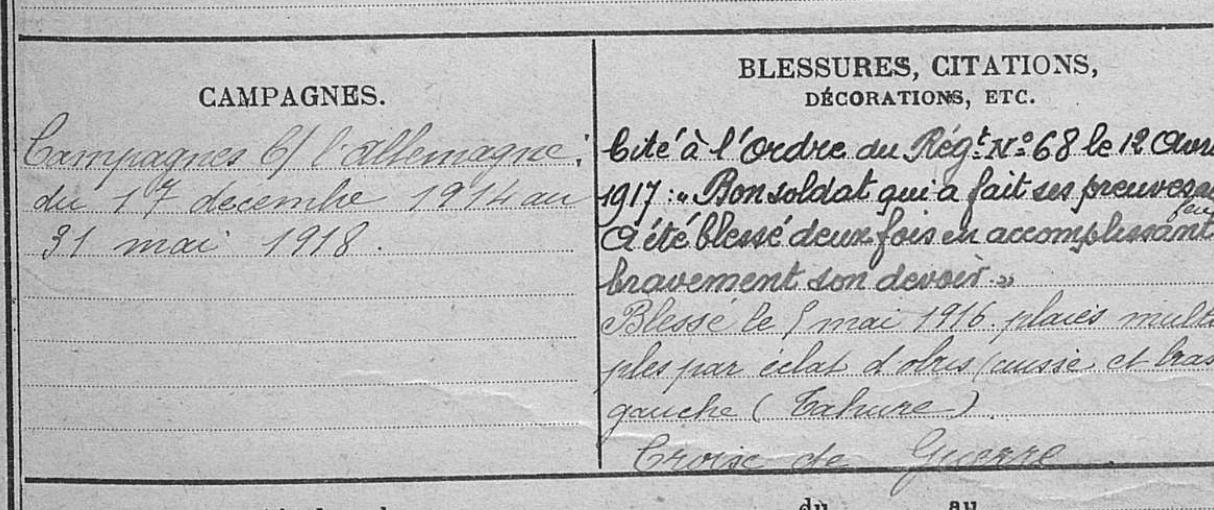 CAMPAGNES.
Campagnes C/ l'allemagne.
du 17 decembe 1914 au
31 mai 1918.
BLESSURES, CITATIONS,
DÉCORATIONS, ETC.
Cité à l'Ordre du Régt. No 68 le 12 Avri
1917 : " Bon soldat qui a fait ses preuves au
feu
A été blessé deux fois en accomplissant
bravement son devoir. "
Blessé le 5 mai 1916. plaies multi
ples par éclat d'obus (cuisse et bras
gauche (Tahure).
Croix de Guerre.
du au